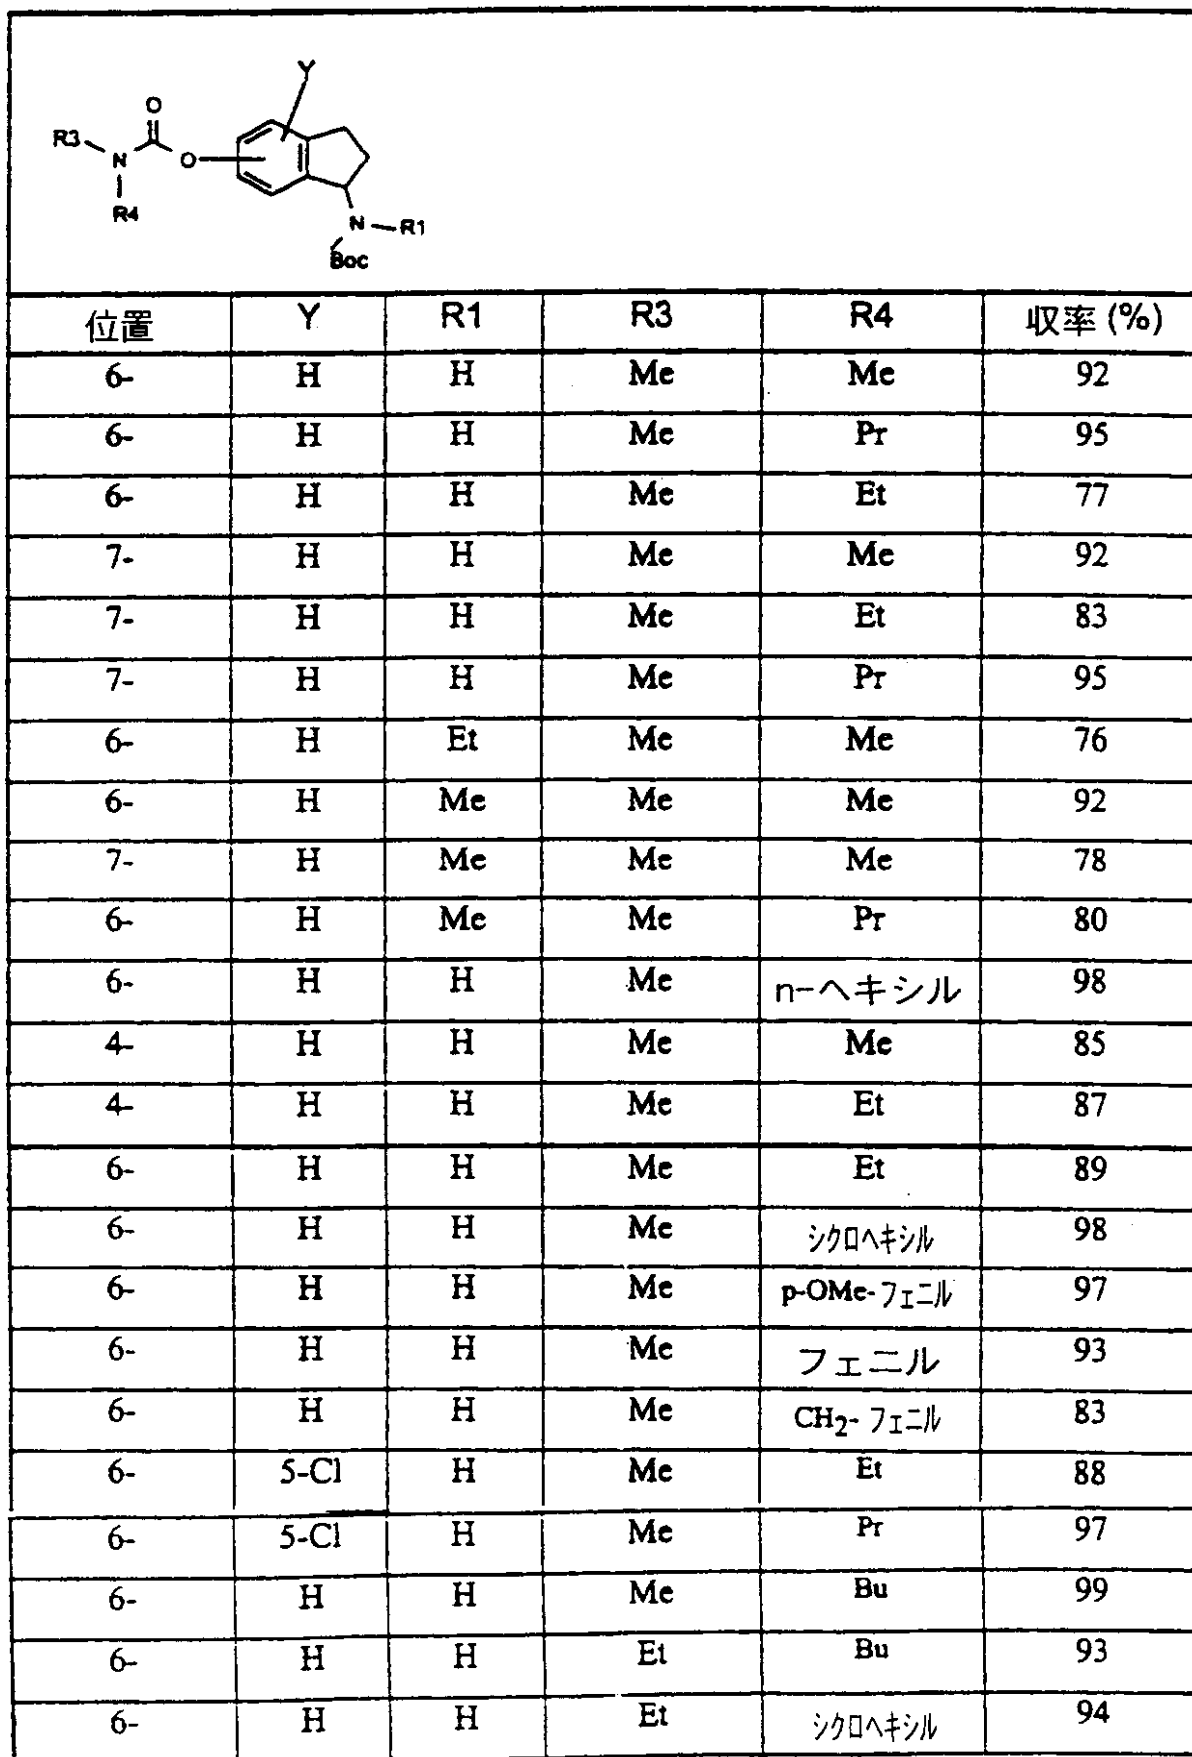 Y
O
R3 N O
R4
N R1
Boc
位置 Y R1 R3 R4 収率 (%)
6- H H Me Me 92
6- H H Me Pr 95
6- H H Me Et 77
7- H H Me Me 92
7- H H Me Et 83
7- H H Me Pr 95
6- H Et Me Me 76
6- H Me Me Me 92
7- H Me Me Me 78
6- H Me Me Pr 80
6- H H Me n-ヘキシル 98
4- H H Me Me 85
4- H H Me Et 87
6- H H Me Et 89
6- H H Me シクロヘキシル 98
6- H H Me p-OMe-フェニル 97
6- H H Me フェニル 93
6- H H Me CH₂-フェニル 83
6- 5-Cl H Me Et 88
6- 5-Cl H Me Pr 97
6- H H Me Bu 99
6- H H Et Bu 93
6- H H Et シクロヘキシル 94